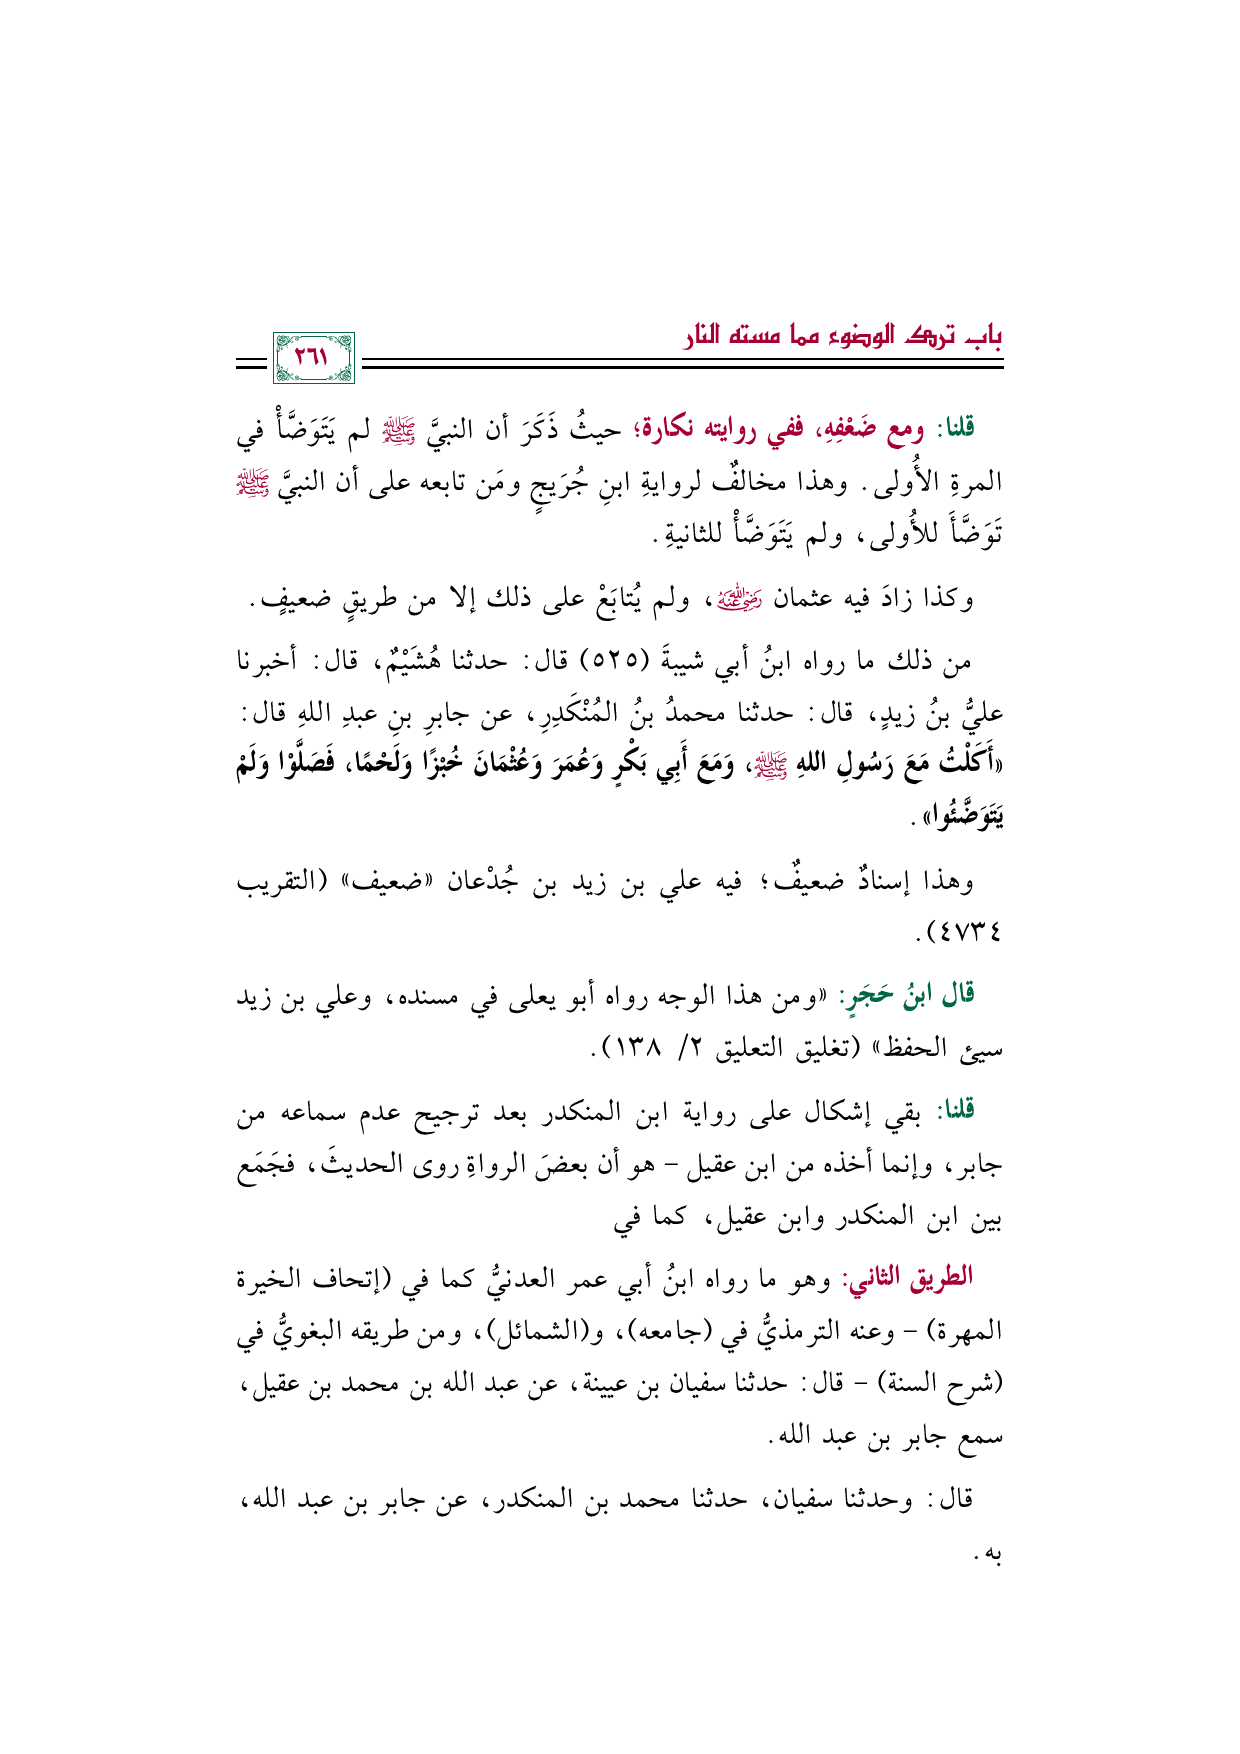 باب ترك الوضوء مما مسته النار
٢٦١
قلنا: ومع ضَعْفِهِ، ففي روايته نكارة؛ حيثُ ذَكَرَ أن النبيَّ ﷺ لم يَتَوَضَّأْ في
المرةِ الأُولى. وهذا مخالفٌ لروايةِ ابنِ جُرَيجٍ ومَن تابعه على أن النبيَّ ﷺ
تَوَضَّأَ للأُولى، ولم يَتَوَضَّأْ للثانيةِ.
وكذا زادَ فيه عثمان رَضِيَ اللهُ عَنْهُ، ولم يُتابَعْ على ذلك إلا من طريقٍ ضعيفٍ.
من ذلك ما رواه ابنُ أبي شيبةَ (٥٢٥) قال: حدثنا هُشَيْمٌ، قال: أخبرنا
عليُّ بنُ زيدٍ، قال: حدثنا محمدُ بنُ المُنْكَدِرِ، عن جابرِ بنِ عبدِ اللهِ قال:
«أَكَلْتُ مَعَ رَسُولِ اللهِ ﷺ، وَمَعَ أَبِي بَكْرٍ وَعُمَرَ وَعُثْمَانَ خُبْزًا وَلَحْمًا، فَصَلَّوْا وَلَمْ
يَتَوَضَّئُوا».
وهذا إسنادٌ ضعيفٌ؛ فيه علي بن زيد بن جُدْعان «ضعيف» (التقريب
٤٧٣٤).
قال ابنُ حَجَرٍ: «ومن هذا الوجه رواه أبو يعلى في مسنده، وعلي بن زيد
سيئ الحفظ» (تغليق التعليق ٢/ ١٣٨).
قلنا: بقي إشكال على رواية ابن المنكدر بعد ترجيح عدم سماعه من
جابر، وإنما أخذه من ابن عقيل – هو أن بعضَ الرواةِ روى الحديثَ، فجَمَع
بين ابن المنكدر وابن عقيل، كما في
الطريق الثاني: وهو ما رواه ابنُ أبي عمر العدنيُّ كما في (إتحاف الخيرة
المهرة) – وعنه الترمذيُّ في (جامعه)، و(الشمائل)، ومن طريقه البغويُّ في
(شرح السنة) – قال: حدثنا سفيان بن عيينة، عن عبد الله بن محمد بن عقيل،
سمع جابر بن عبد الله.
قال: وحدثنا سفيان، حدثنا محمد بن المنكدر، عن جابر بن عبد الله،
به.